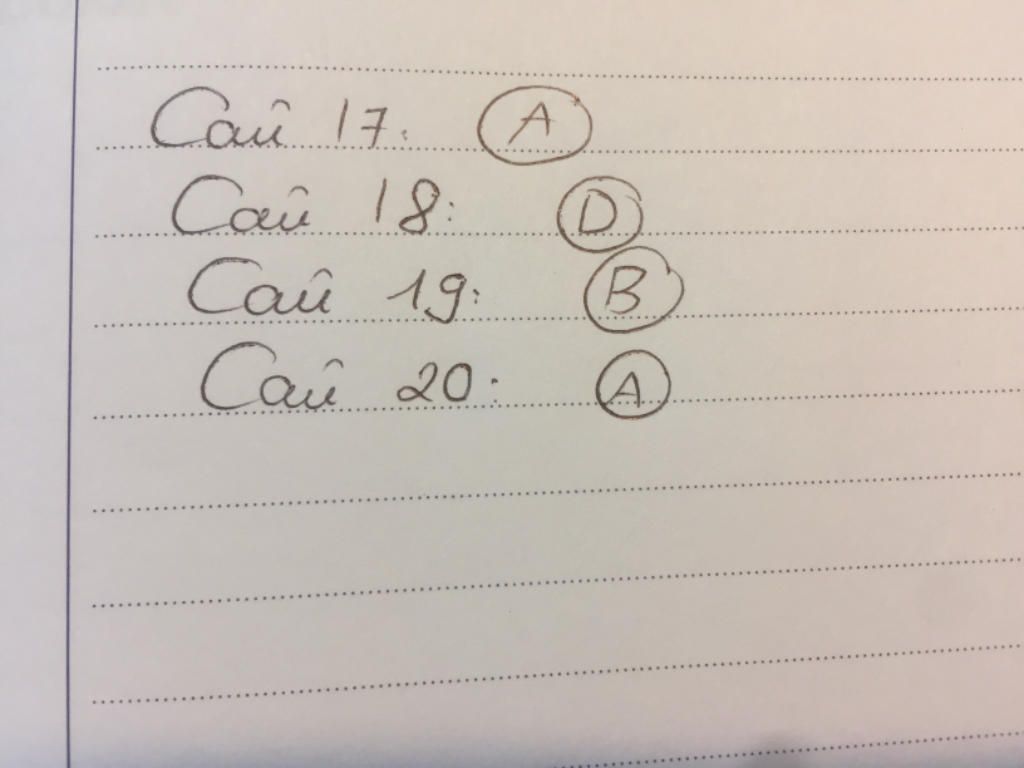 Câu 17: A
Câu 18: D
Câu 19: B
Câu 20: A